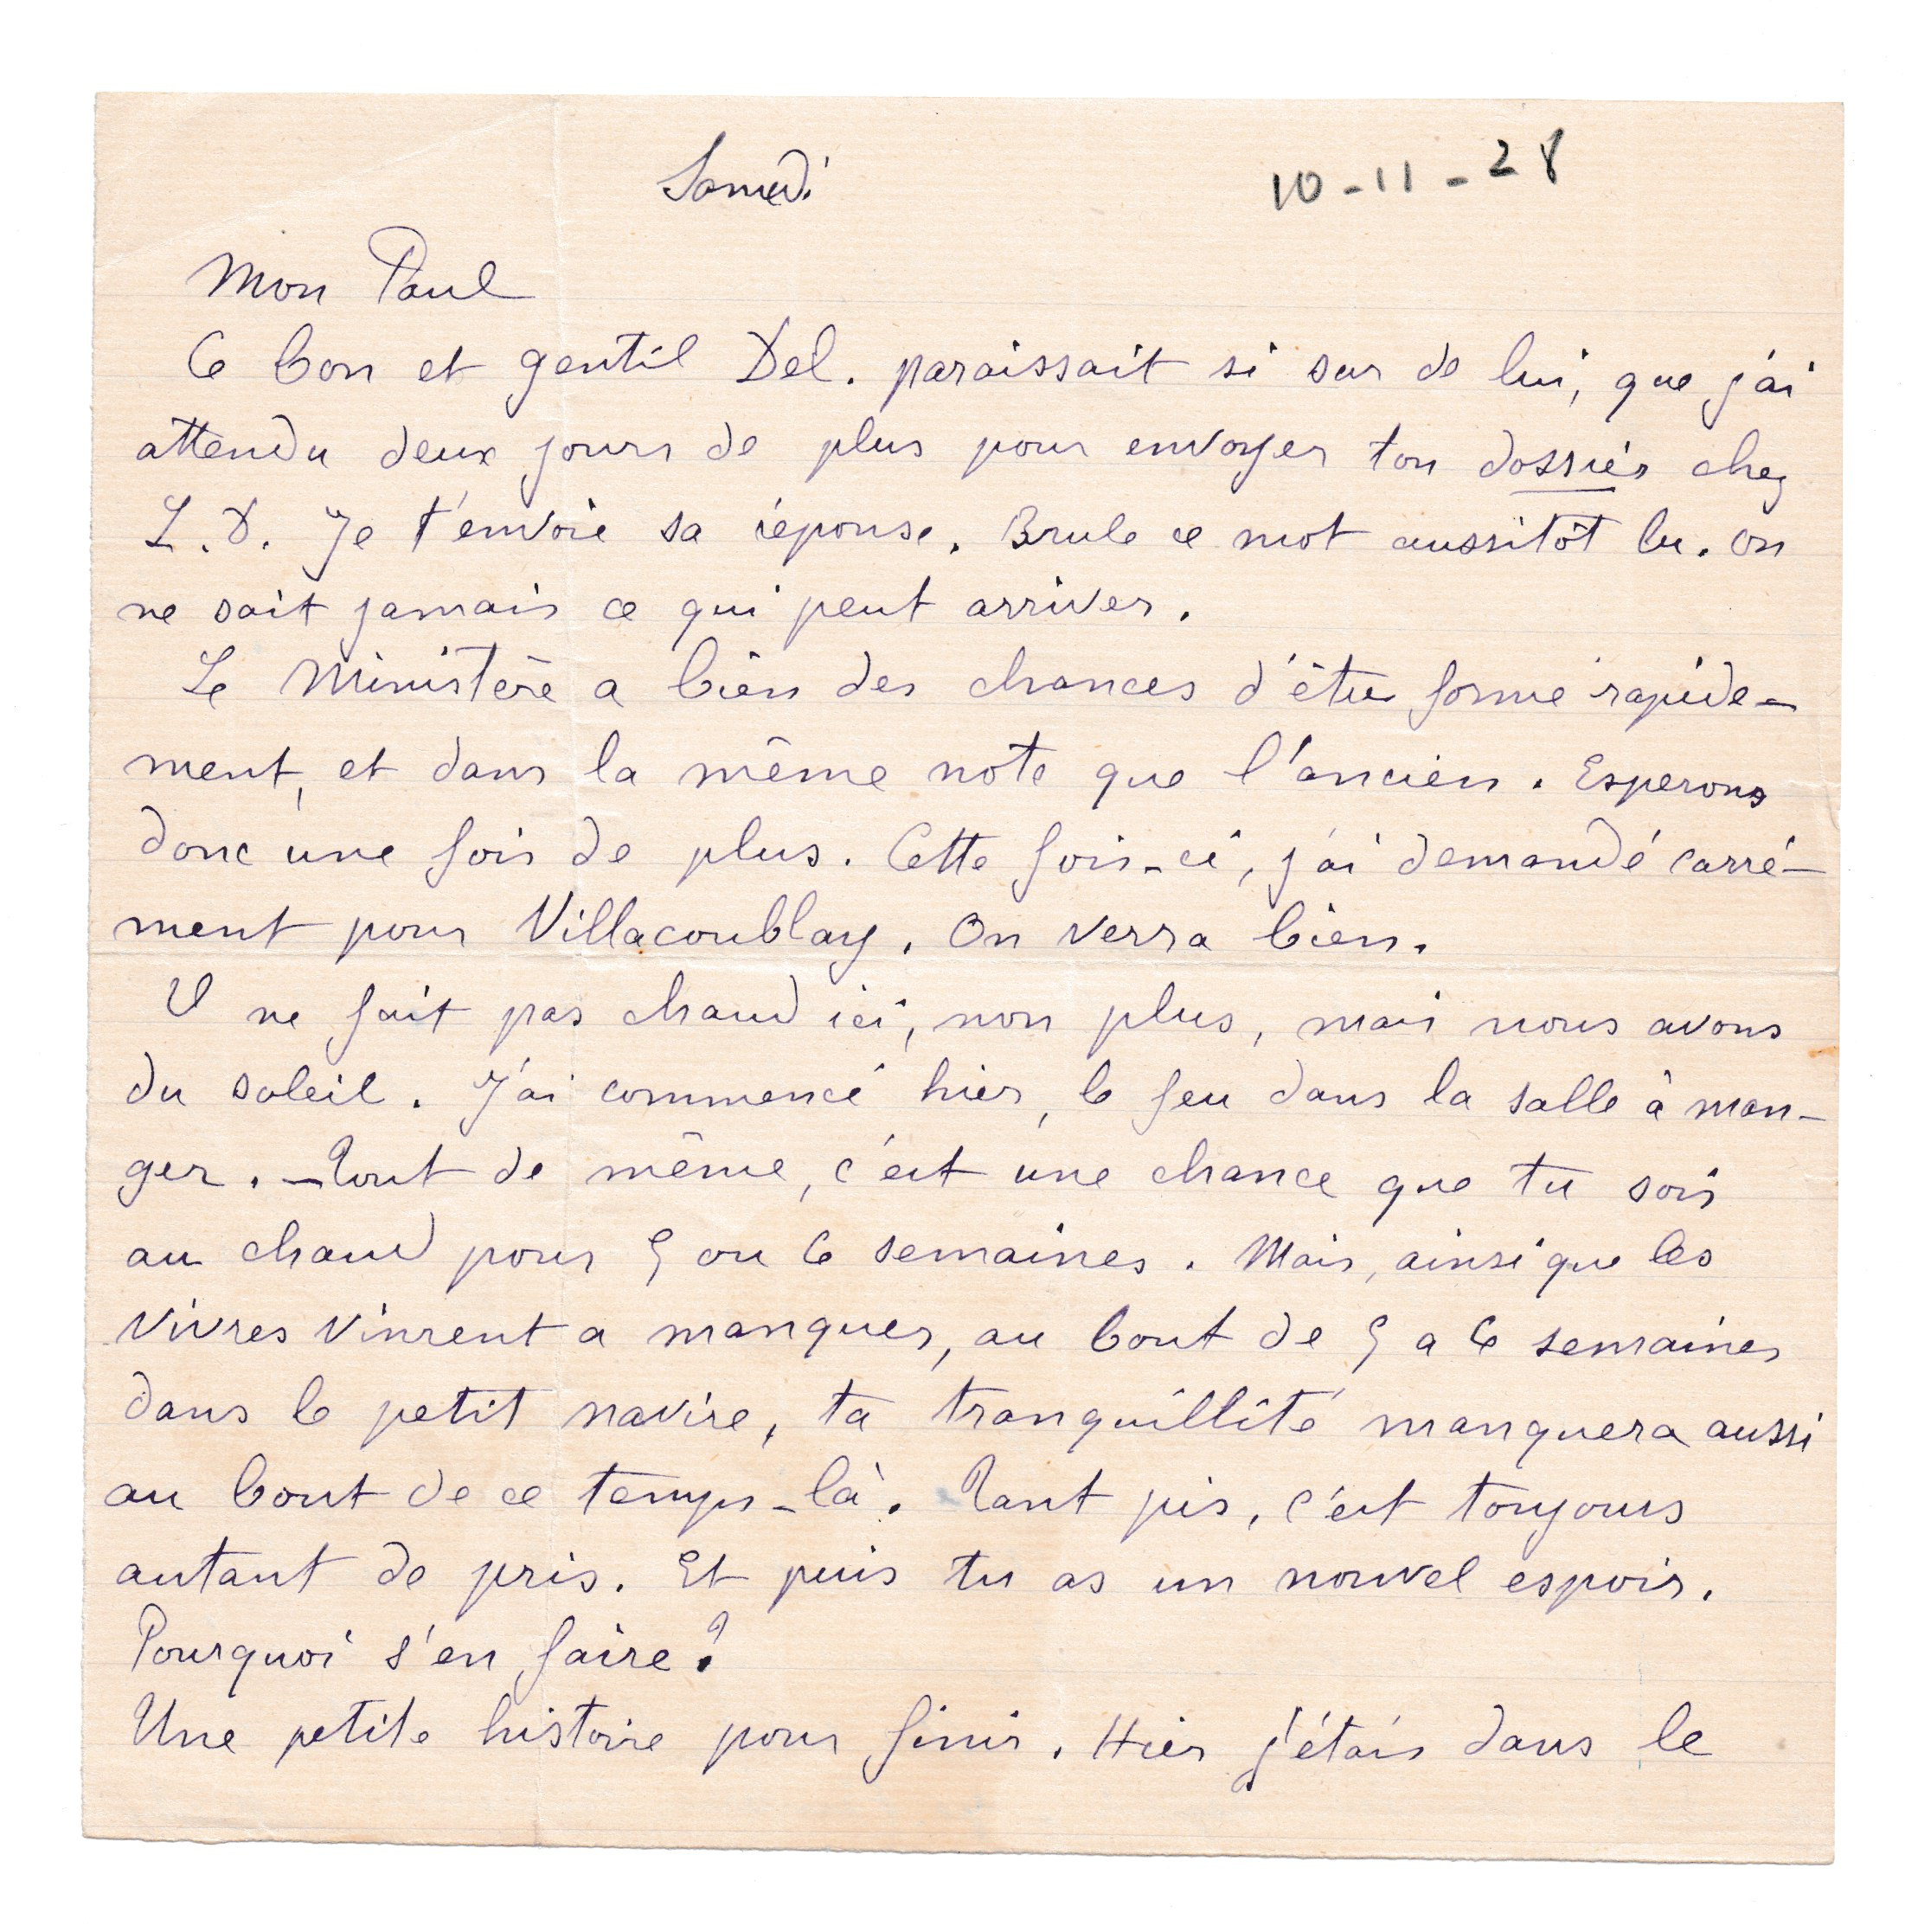 Samedi
10-11-28
Mon Paul
Ce bon et gentil Del. paraissait si sur de lui, que j'ai
attendu deux jours de plus pour envoyer ton dossier chez
L.D. Je t'envoie sa réponse. Brule ce mot aussitôt lu. On
ne sait jamais ce qui peut arriver.
Le Ministère a bien des chances d'être formé rapide-
ment, et dans la même note que l'ancien. Esperons
donc une fois de plus. Cette fois-ci, j'ai demandé carré-
ment pour Villacoublay. On verra bien.
Il ne fait pas chaud ici, non plus, mais nous avons
du soleil. J'ai commencé hier, le feu dans la salle à man-
ger. - Tout de même, c'est une chance que tu sois
au chaud pour 5 ou 6 semaines. Mais, ainsi que les
vivres vinrent a manquer, au bout de 5 a 6 semaines
dans le petit navire, ta tranquillité manquera aussi
au bout de ce temps-là. Tant pis, c'est toujours
autant de pris. Et puis tu as un nouvel espoir.
Pourquoi s'en faire?
Une petite histoire pour finir. Hier j'étais dans le